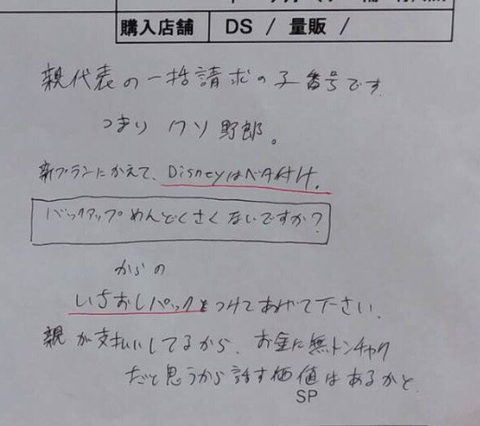 購入店舗 DS / 量販 /
親代表の一括請求の子番号です
つまりクソ野郎。
新プランにかえて、Disneyはベタ付け。
バックアップめんどくさくないですか?
からの
いちおしパックをつけてあげて下さい。
親が支払いしてるから、お金に無トンチャク
だと思うから話す価値はあるかと。
SP